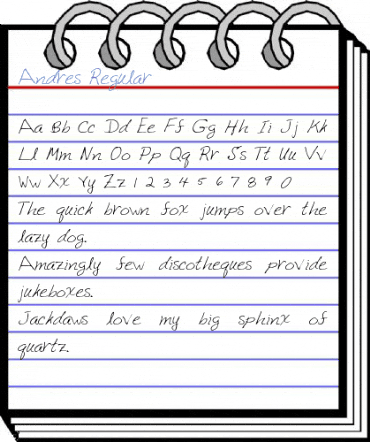 Andres Regular
Aa Bb Cc Dd Ee Ff Gg Hh Ii Jj Kk
Ll Mm Nn Oo Pp Qq Rr Ss Tt Uu Vv
Ww Xx Yy Zz 1 2 3 4 5 6 7 8 9 0
The quick brown fox jumps over the
lazy dog.
Amazingly few discotheques provide
jukeboxes.
Jackdaws love my big sphinx of
quartz.